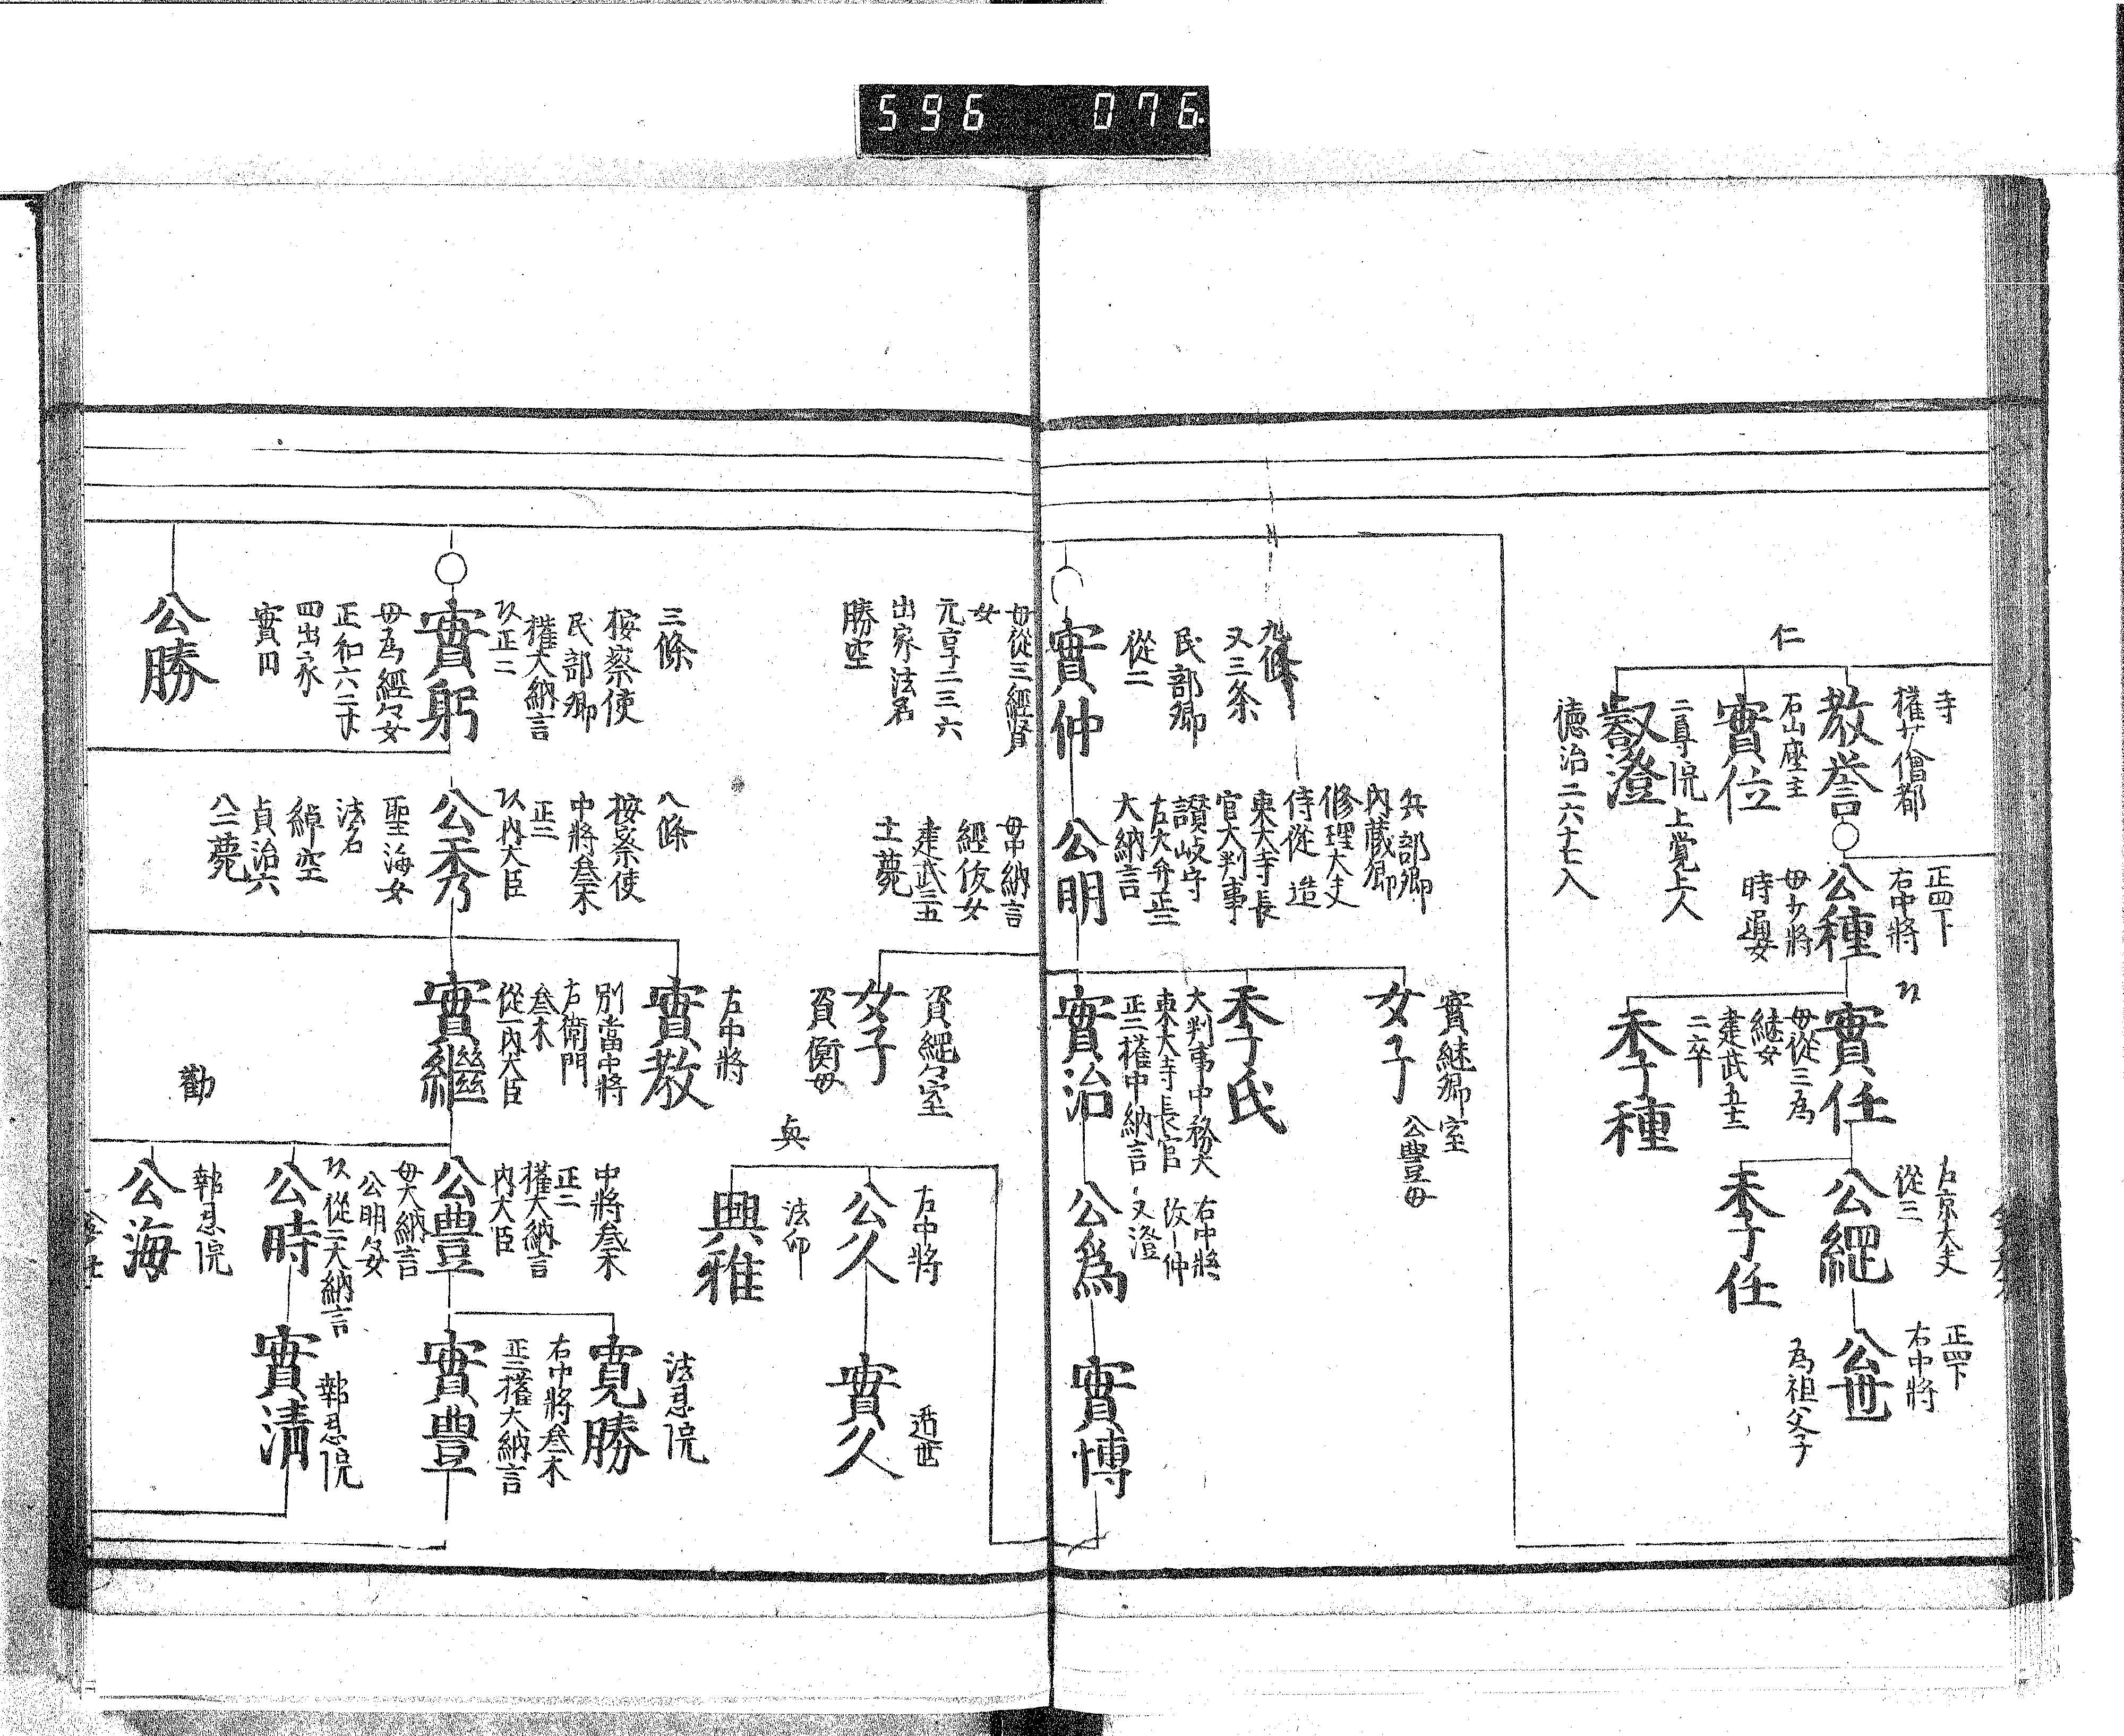 596 076.
仁
寺
權少僧都
教誉
石山座主
實位
二尊院上覚上人
叡澄
徳治二六十七入
正四下
右中將
公種
母少將
實任
母從三為
継女
建武五十二
二卒
季種
右京大夫
從三
公縄
季任
正四下
右中將
公世
為祖父子
九條
又三条
民部卿
從二
實仲
母從三經賢
女
元亨二三六
出家法名
勝空
兵部卿
内蔵卿
修理大夫
侍從 造
東大寺長
官大判事
讃岐守
左大弁正二
大納言
公明
母中納言
經俊女
建武三五
十一薨
實継卿室
女子
公豊母
季氏
大判事中務大
東大寺長官
正二權中納言
實治
資縄々室
女子
資衡母
右中將
改仲
又澄
公為
實博
右中將
公久
法印
興雅
眞
遁世
實久
三條
按察使
民部卿
權大納言
以正二
實躬
母為經々女
正和六二廿
四出家
實円
公勝
八條
按察使
中將叄木
正二
以内大臣
公秀
聖海女
法名
綽空
貞治六
八二薨
右中將
實教
別當中將
右衛門
叄木
從一内大臣
實繼
勸
中將叄木
正二
權大納言
内大臣
公豊
母大納言
公明々女
以從二大納言
公時
報恩院
公海
法恩院
寛勝
右中將叄木
正二權大納言
實豊
報恩院
實清